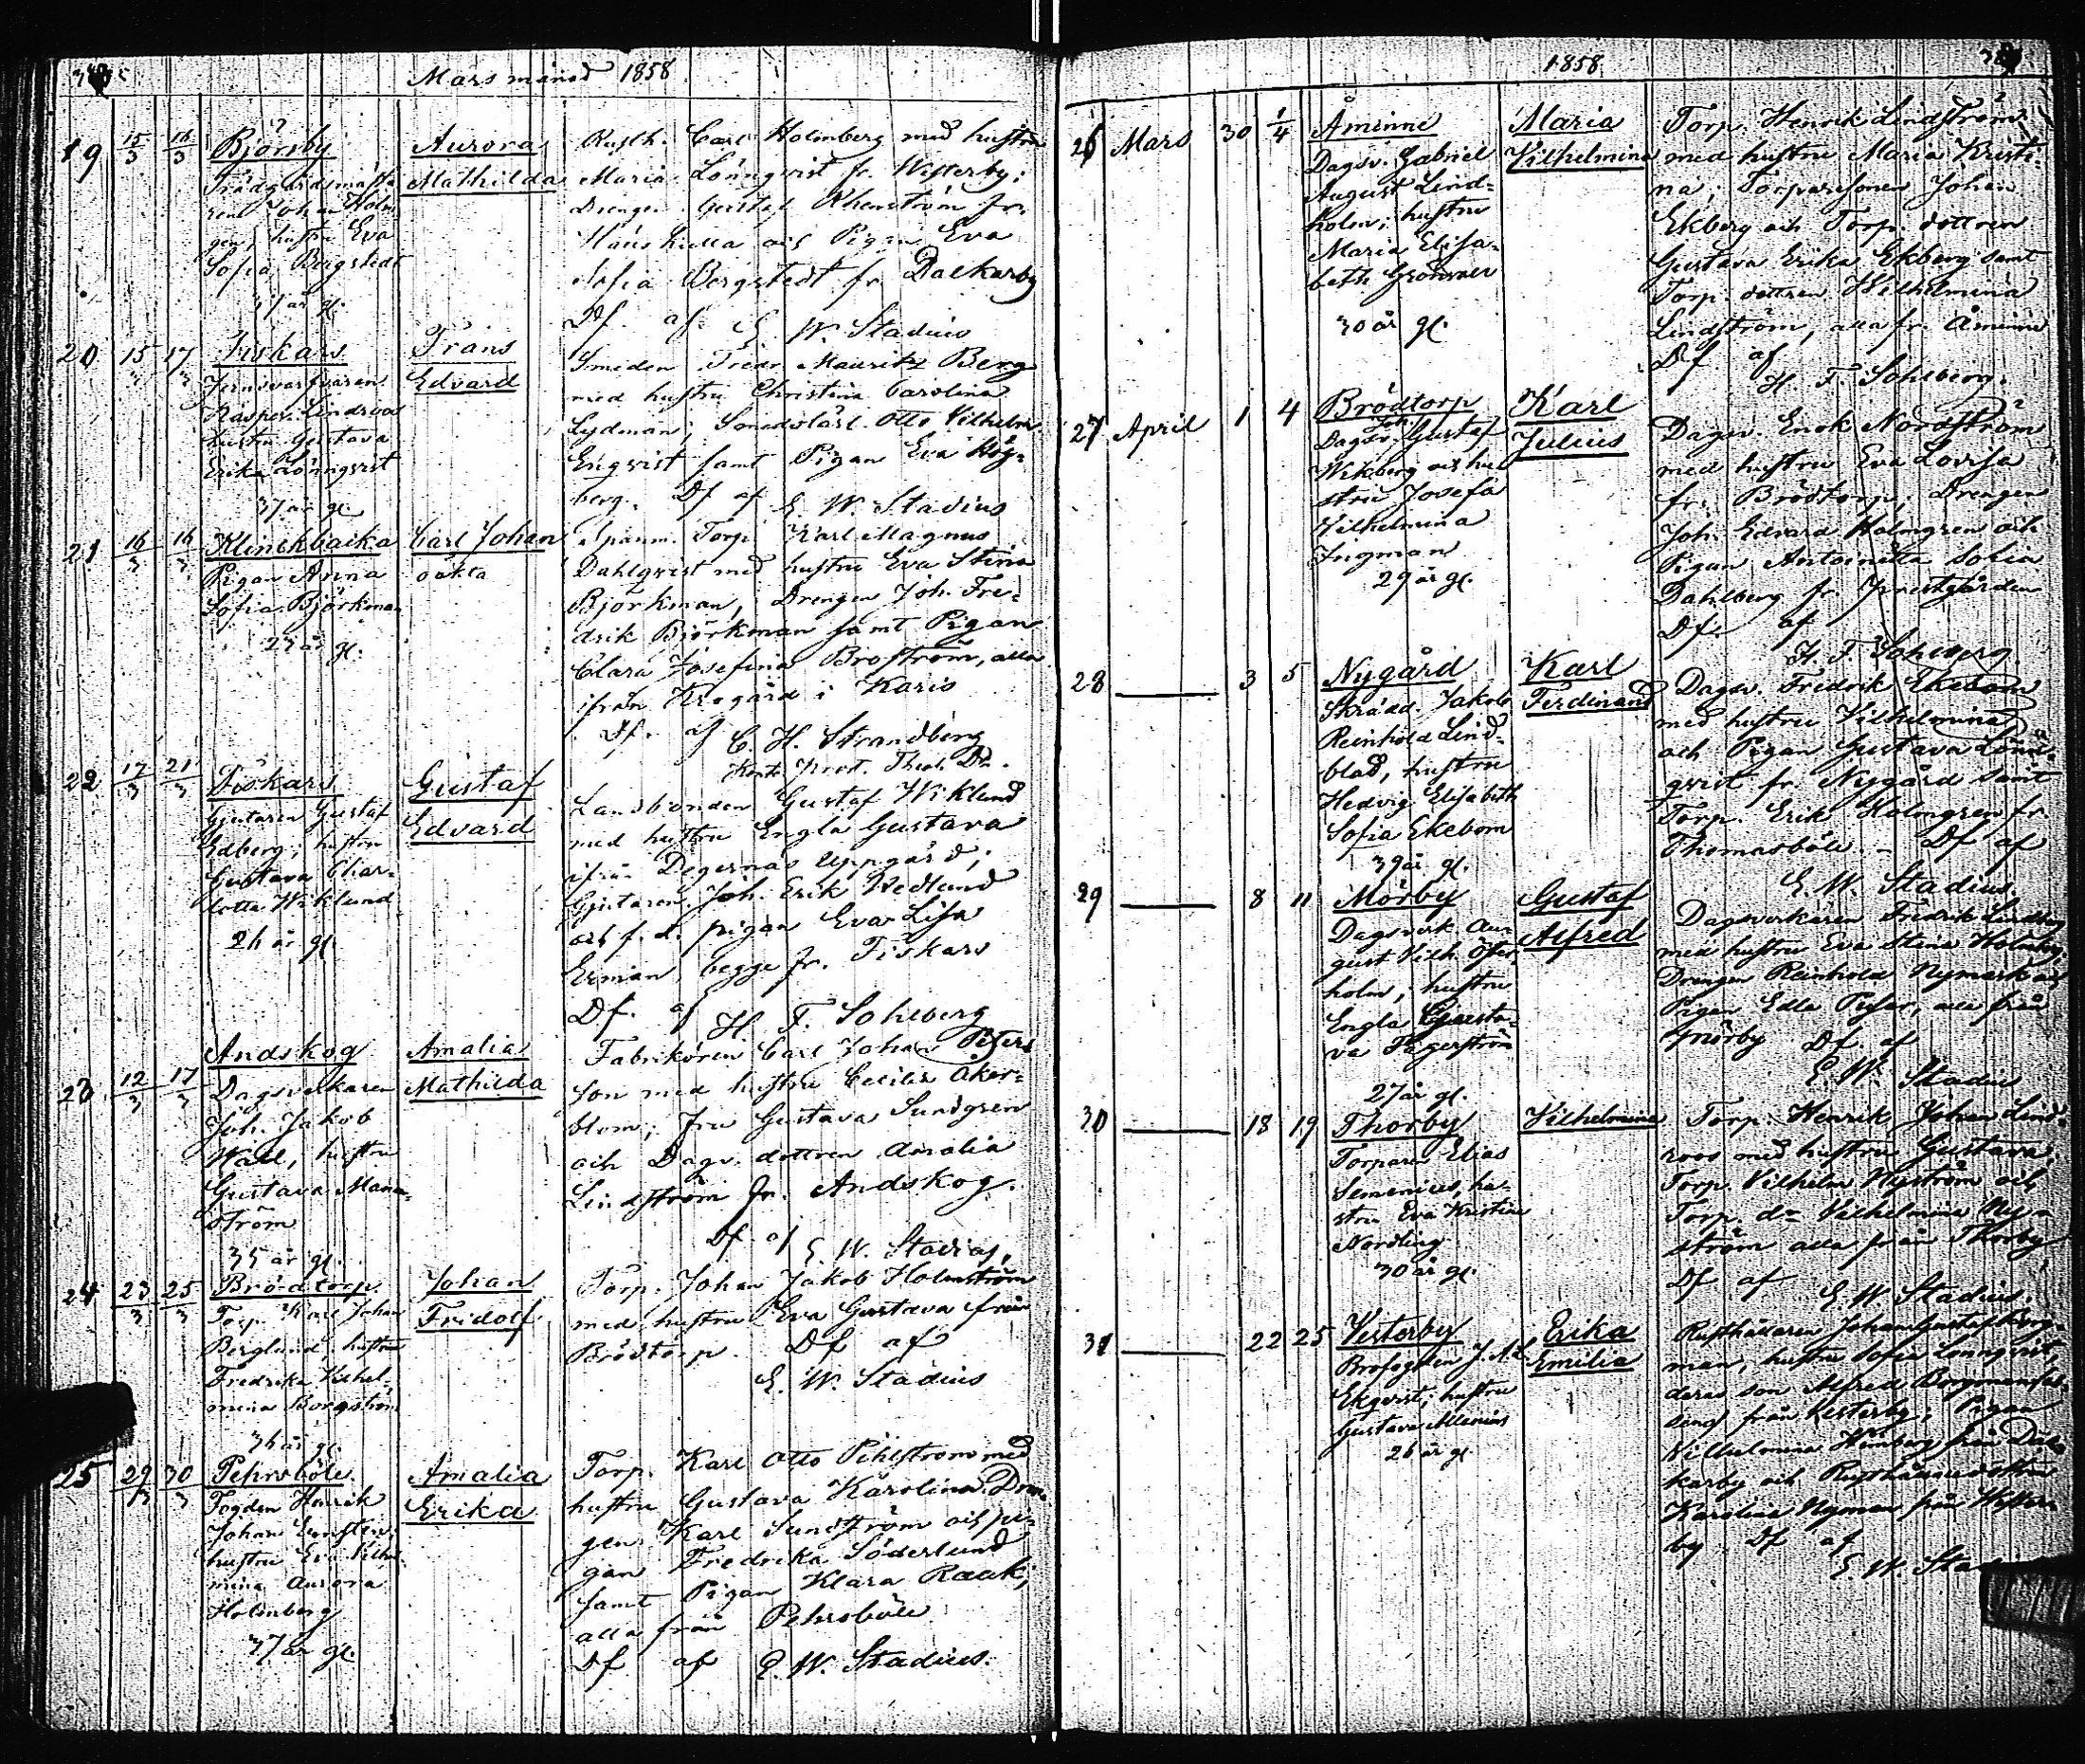 Mars månad 1858
19 15/3 16/3 Björsby Aurora Mathilda
Trädgårdsmästa-
ren Johan Holm-
gren, hustru Eva
Sofia Bergstedt
37 år gl.
Rusth. Carl Holmberg med hustru
Maria Lönnqvist fr. Westerby;
Drengen Gustaf
och Pigan Eva
Sofia Bergstedt fr. Dalkarby
Df. af E. W. Stadius
20 15/3 17/3 Fiskars Frans Edvard
Jernsvarfvaren
Kasper Lindroos
hustru Gustava
Erika Lönnqvist
37 år gl.
Smeden Fredr. Mauritz Berg
med hustru Christina Carolina
Lydman; Otto Vilhelm
Engvist samt Pigan Eva Hög-
berg. Df af E. W. Stadius
21 16/3 16/3 Klinkbacka Carl Johan
oäkta
Pigan Anna
Sofia Björkman
Torp. Karl Magnus
Dahlqvist med hustru Eva Stina
Björkman, Drengen Joh. Fre-
drik Björkman samt Pigan
Clara Josefina Broström, alla
ifrån Krogård i Karis
Df. af C. H. Strandberg
22 17/3 21/3 Fiskars Gustaf Edvard
Gjutaren Gustaf
Edberg; hustru
Gustava Char-
lotta Wiklund
26 år gl.
Landbonden Gustaf Wiklund
med hustru Engla Gustava
ifrån Degernäs Uppgård;
Gjutaren Joh. Erik Hedlund
och f. d. pigan Eva Lisa
Erman begge fr. Fiskars
Df. af H. F. Sohlberg
23 12/3 17/3 Andskog Amalia Mathilda
Dagsverkaren
Joh. Jakob
Wall, hustru
Gustava Mann-
ström
35 år gl.
Fabrikören Carl Johan Peters
son med hustru Cecilia Åker-
blom; Fru Gustava Sundgren
och Dagsv. dottren Amalia
Lindström fr. Andskog.
Df. af E. W. Stadius,
24 23/3 25/3 Brödtorp Johan Fridolf
Torp. Karl Johan
Berglund hustru
Fredrika Vilhel-
mina Borgström
36 år gl.
Torp. Johan Jakob Holmström
med hustru Eva Gustava från
Brödtorp. Df af
E. W. Stadius
25 29/3 30/3 Pehrsböle Amalia Erika
Fogden Henrik
Johan
hustru Eva Vilhel-
mina Aurora
Holmberg
37 år gl.
Torp. Karl Otto Pihlström med
hustru Gustava Karolina. Dren-
gen Karl Sundström och pi-
gan Fredrika Söderlund
samt Pigan Klara Rauk;
alla från Pehrsböle
Df af E. W. Stadius.
1858
26 Mars 30 1/4 Åminne Maria Vilhelmina
Dagsv. Gabriel
August Lind-
holm; hustru
Maria Elisa-
beth Grönroos
30 år gl.
Torp. Henrik Lindström
med hustru Maria Kristi-
na; Torparesonen Johan
Ekberg och Torp. dottren
Gustava Erika Ekberg samt
Torp. dottren Wilhelmina
Lindström, alla fr. Åminne
Df af
H. F. Sohlberg.
27 April 1 4 Brödtorp Karl Julius
Dagsv. Joh. Gustaf
Wikberg och hu-
stru Josefa
Vilhelmina
Ingman
29 år gl.
Dagsv. Enok Nordström
med hustru Eva Lovisa
fr. Brödtorp; Drengen
Joh. Edvard Holmgren och
Pigan Antoinetta Sofia
Dahlberg fr. Prestgården
Df. af
H. F. Sohlberg.
28 — 3 5 Nygård Karl Ferdinand
Skrädd. Jakob
Reinhold Lind-
blad, hustru
Hedvig Elisabeth
Sofia Ekebom
39 år gl.
Dagsv. Fredrik Ekebom
med hustru Vilhelmina
och Pigan Gustava Lönn-
qvist fr. Nygård samt
Torp. Erik Holmgren fr.
Thomasböle - Df af
E. W. Stadius.
29 — 8 11 Mörby Gustaf Alfred
Dagsverk. Au-
gust Vilh. Öster-
holm, hustru
Engla Gusta-
va Tigerström
27 år gl.
Dagsverkaren Fredrik Lindberg
med hustru Eva Stina Holmberg,
Drengen Reinhold Nymark och
Pigan Edla alla från
Mörby Df af
E. W. Stadius
30 — 18 19 Thorby Vilhelmina
Torparen Elias
Semenius, hu-
stru Eva Kristina
Nordling
30 år gl.
Torp. Henrik Johan Lind-
roos med hustru Gustava,
Torp. Vilhelm Nyström och
Torp. dr Vilhelmina Ny-
ström alla från Thorby
Df af E. W. Stadius.
31 — 22 25 Vesterby Erika Emilia
Brofogden J. A.
Ekqvist; hustru
Gustava
26 år gl.
Rusthållaren Johan Gustaf Berg-
man, hustru Sofia Lönnqvist,
deras son Alfred Bergman
från Vesterby; Pigan
Vilhelmina från Dal-
karby och
Karolina Nyman från Wester-
by. Df af
E. W. Sta